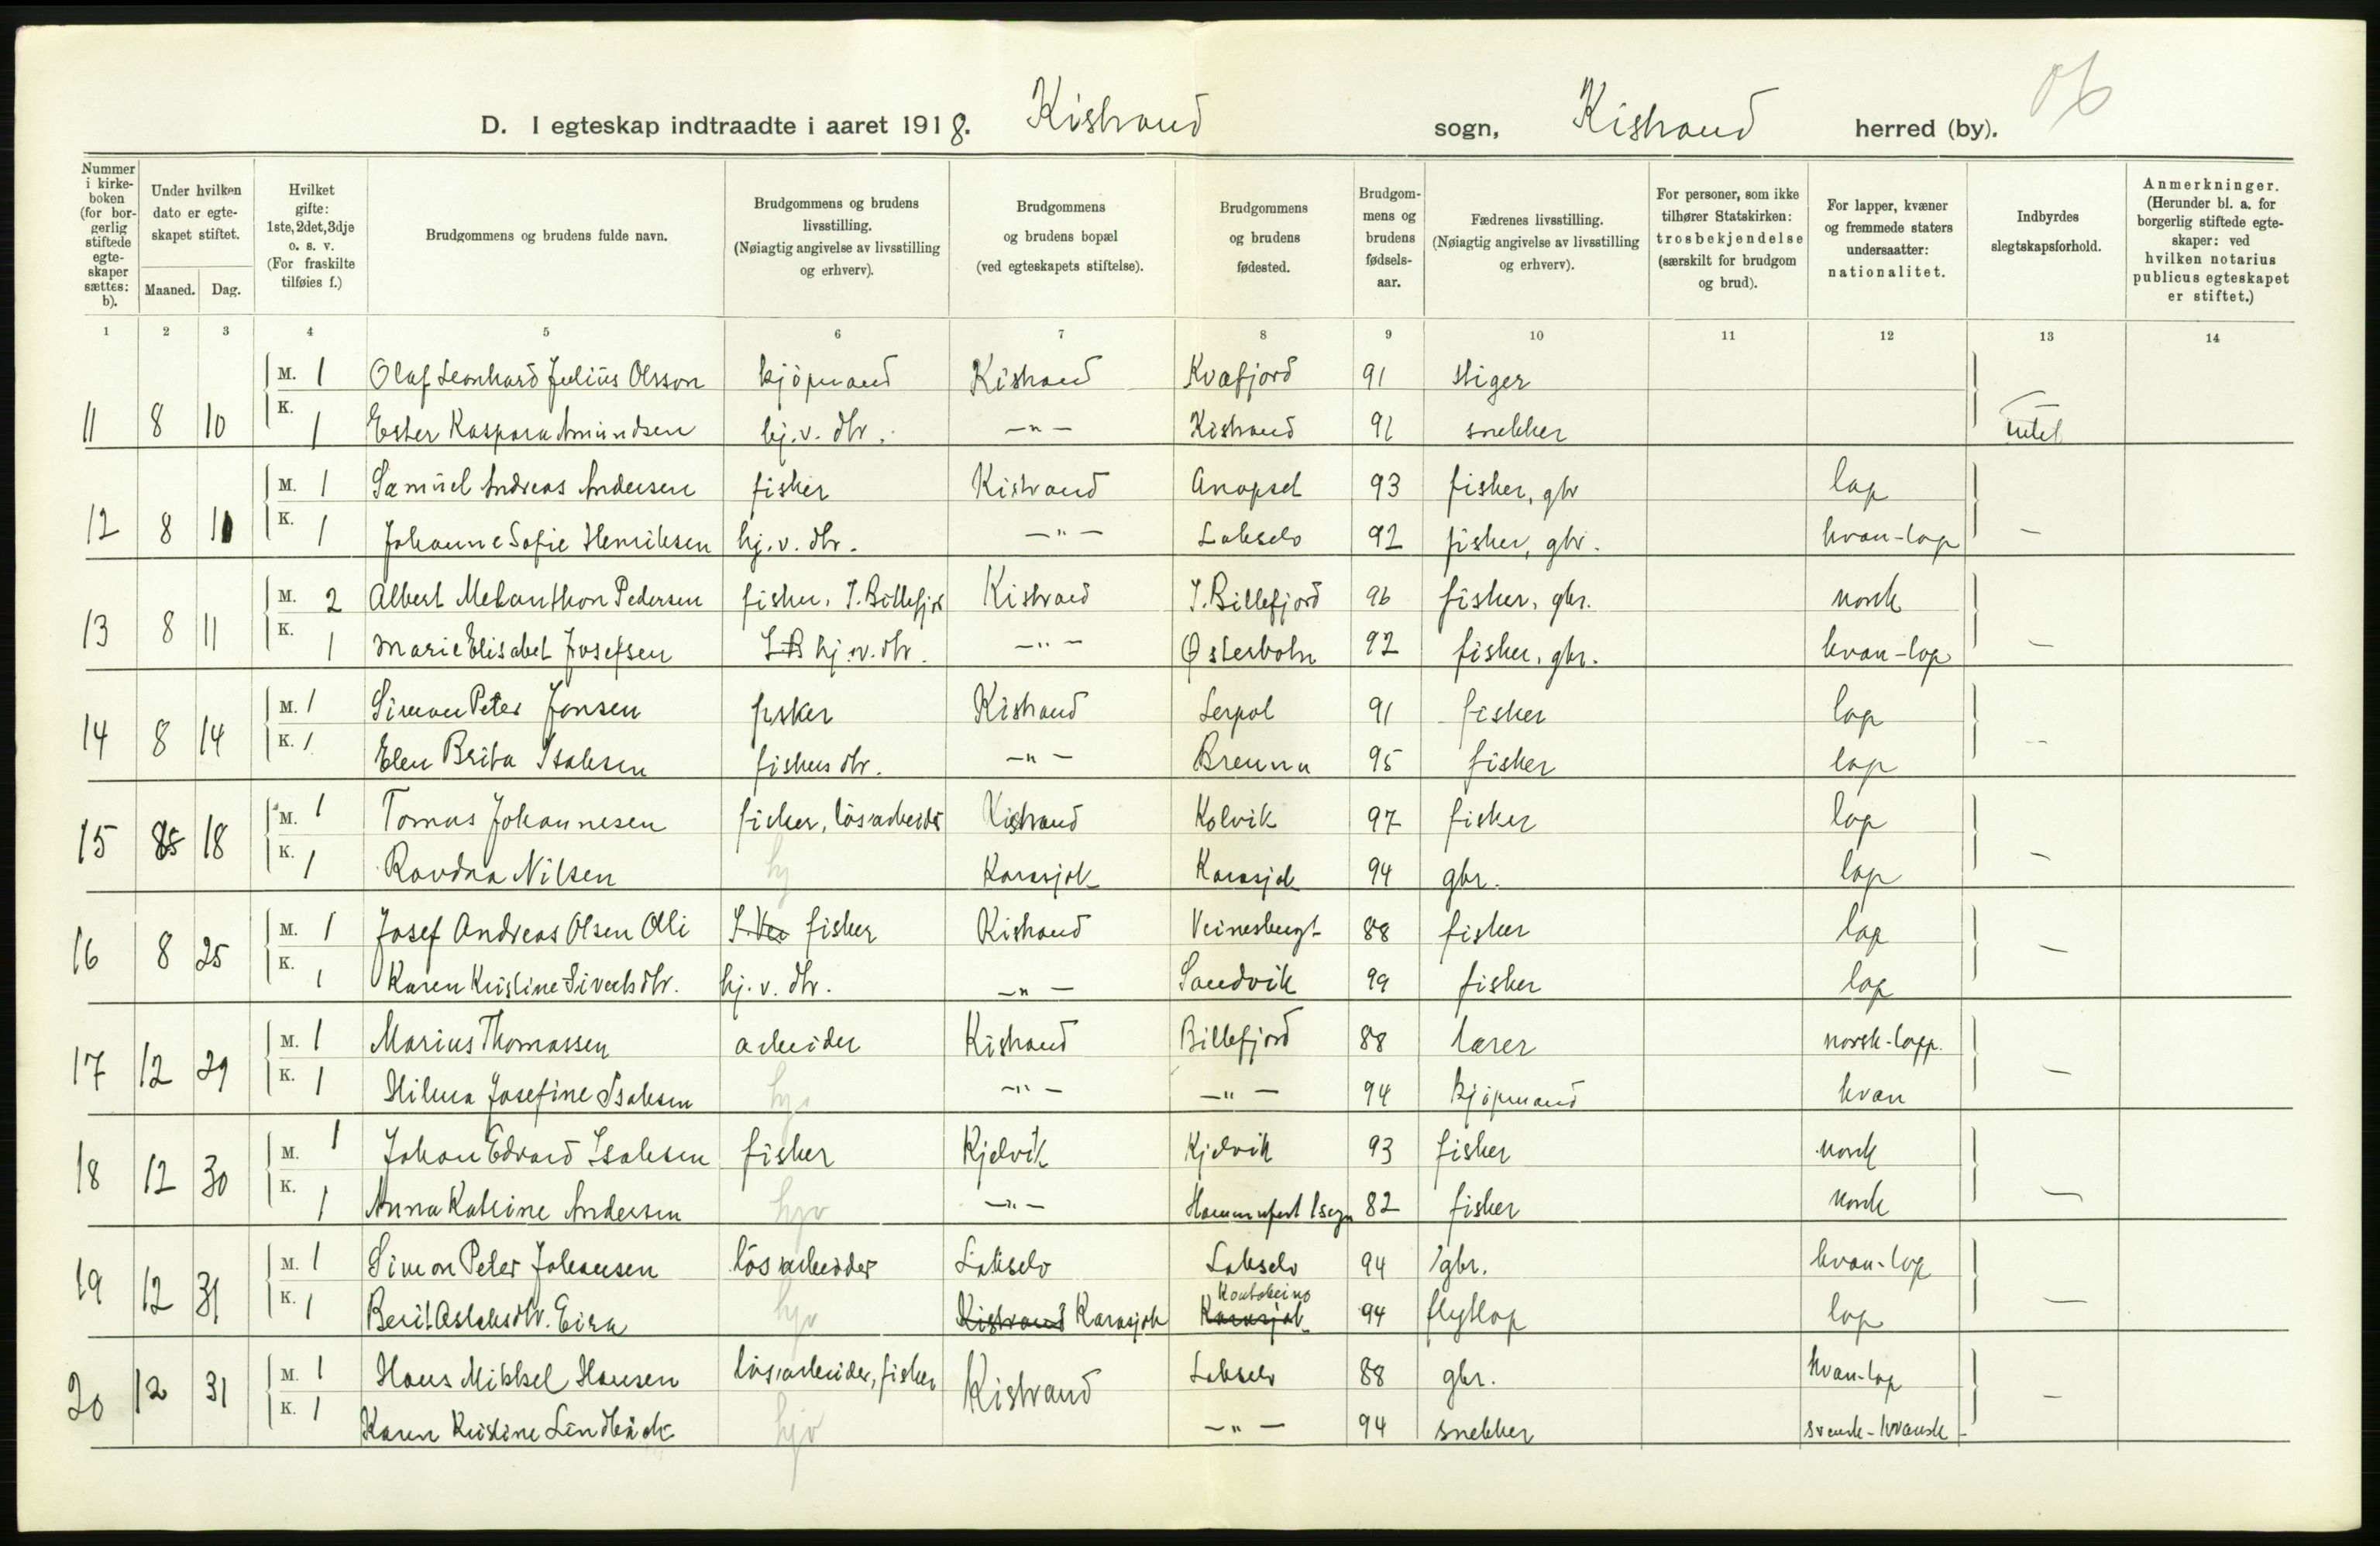 D. I egteskap indtraadte i aaret 1918. Kistrand sogn, Kistrand herred (by).
Nummer i kirkeboken (for borgerlig stiftede egteskaper sættes: b).
Under hvilken dato er egteskapet stiftet.
Maaned. Dag.
Hvilket gifte: 1ste, 2det, 3dje o. s. v. (For fraskilte tilføies f.)
Brudgommens og brudens fulde navn.
Brudgommens og brudens livsstilling. (Nøiagtig angivelse av livsstilling og erhverv).
Brudgommens og brudens bopæl (ved egteskapets stiftelse).
Brudgommens og brudens fødested.
Brudgommens og brudens fødselsaar.
Fædrenes livsstilling. (Nøiagtig angivelse av livsstilling og erhverv).
For personer, som ikke tilhører Statskirken: trosbekjendelse (særskilt for brudgom og brud).
For lapper, kvæner og fremmede staters undersaatter: nationalitet.
Indbyrdes slegtskapsforhold.
Anmerkninger. (Herunder bl. a. for borgerlig stiftede egteskaper: ved hvilken notarius publicus egteskapet er stiftet.)
1 2 3 4 5 6 7 8 9 10 11 12 13 14
M. 1 Olaf Leonhard Julius Olsson kjöpmand Kistrand Kvæfjord 91 stiger
11 8 10 K. 1 Ester Kaspara Amundsen hj. v. dtr. -"- Kistrand 91 snekker intet
M. 1 Samuel Andreas Andersen fisker Kistrand Anopset 93 fisker, gbr lap
12 8 11 K. 1 Johanne Sofie Henriksen hj. v. dtr. -"- Lakselv 92 fisker, gbr. kvæn-lap -
M. 2 Albert Melanthon Pedersen fisker, I. Billefjord Kistrand I. Billefjord 96 fisker, gbr. norsk
13 8 11 K. 1 Marie Elisabet Josefsen I.B hj. v. dtr. -"- Østerbotn 92 fisker, gbr. kvæn-lap -
M. 1 Simon Peter Jonsen fisker Kistrand Leipol 91 fisker lap
14 8 14 K. 1 Elen Brita Isaksen fiskers dtr. -"- Brenna 95 fisker lap -
M. 1 Tomas Johannesen fisker, løsarbeider Kistrand Kolvik 97 fisker lap
15 8 18 K. 1 Ravdna Nilsen hj Karasjok Karasjok 94 gbr. lap -
M. 1 Josef Andreas Olsen Olli fisker Kistrand Veinesbugt 88 fisker lap
16 8 25 K. 1 Karen Kristine Sivertsdtr. hj. v. dtr. -"- Sandvik 99 fisker lap -
M. 1 Marius Thomassen arbeider Kistrand Billefjord 88 lærer norsk-lapp.
17 12 29 K. 1 Hilma Josefine Isaksen hjv -"- -"- 94 kjöpmand kvæn -
M. 1 Johan Edvard Isaksen fisker Kjelvik Kjelvik 93 fisker norsk
18 12 30 K. 1 Anna Katrine Andersen hjv -"- Hammerfest lsogn 82 fisker norsk -
M. 1 Simon Peter Johansen løsarbeider Lakselv Lakselv 94 gbr. kvæn-lap
19 12 31 K. 1 Berit Aslaksdtr. Eira hjv Kistrand Karasjok Karasjok Kautokeino 94 flytlap lap -
M. 1 Hans Mikkel Hansen løsarbeider, fisker Kistrand Lakselv 88 gbr. kvæn-lap
20 12 31 K. 1 Karen Kristine Lindbäck hjv -"- 94 snekker svensk-kvænsk -